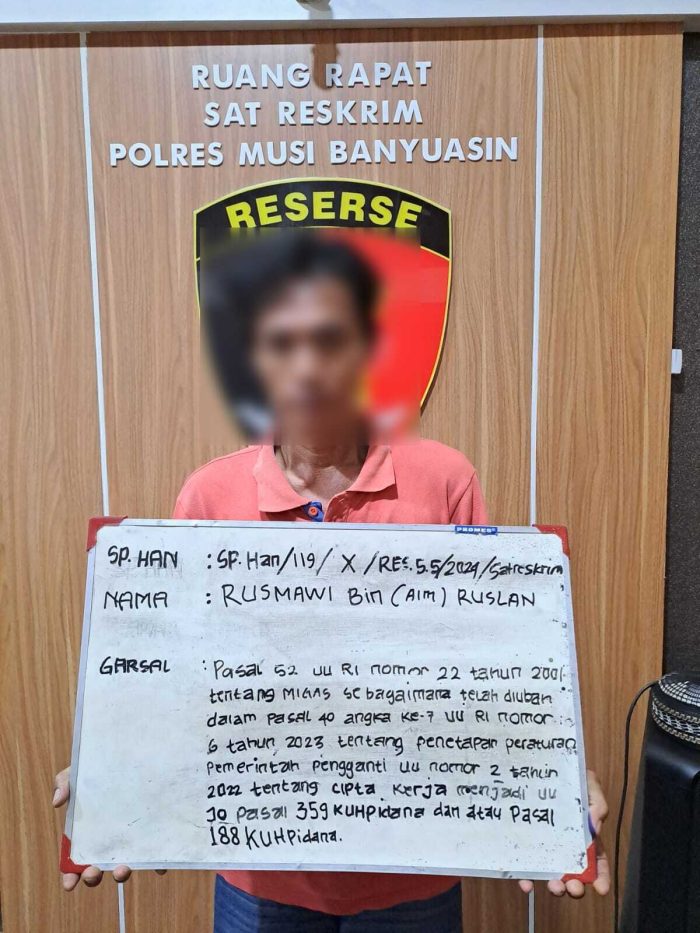 RUANG RAPAT
SAT RESKRIM
POLRES MUSI BANYUASIN
RESERSE
PROMEB
SP. HAN : SP. Han/119/ X /RES.5.5/2024/Satreskrim
NAMA : RUSMAWI Bin (Alm) RUSLAN
GARSAL : Pasal 52 UU RI nomor 22 tahun 2001
tentang MIGAS sebagaimana telah diubah
dalam pasal 40 angka ke-7 UU RI nomor
6 tahun 2023 tentang penetapan peraturan
pemerintah pengganti UU nomor 2 tahun
2022 tentang cipta kerja menjadi UU
JO pasal 359 KUHPidana dan atau Pasal
188 KUHPidana.